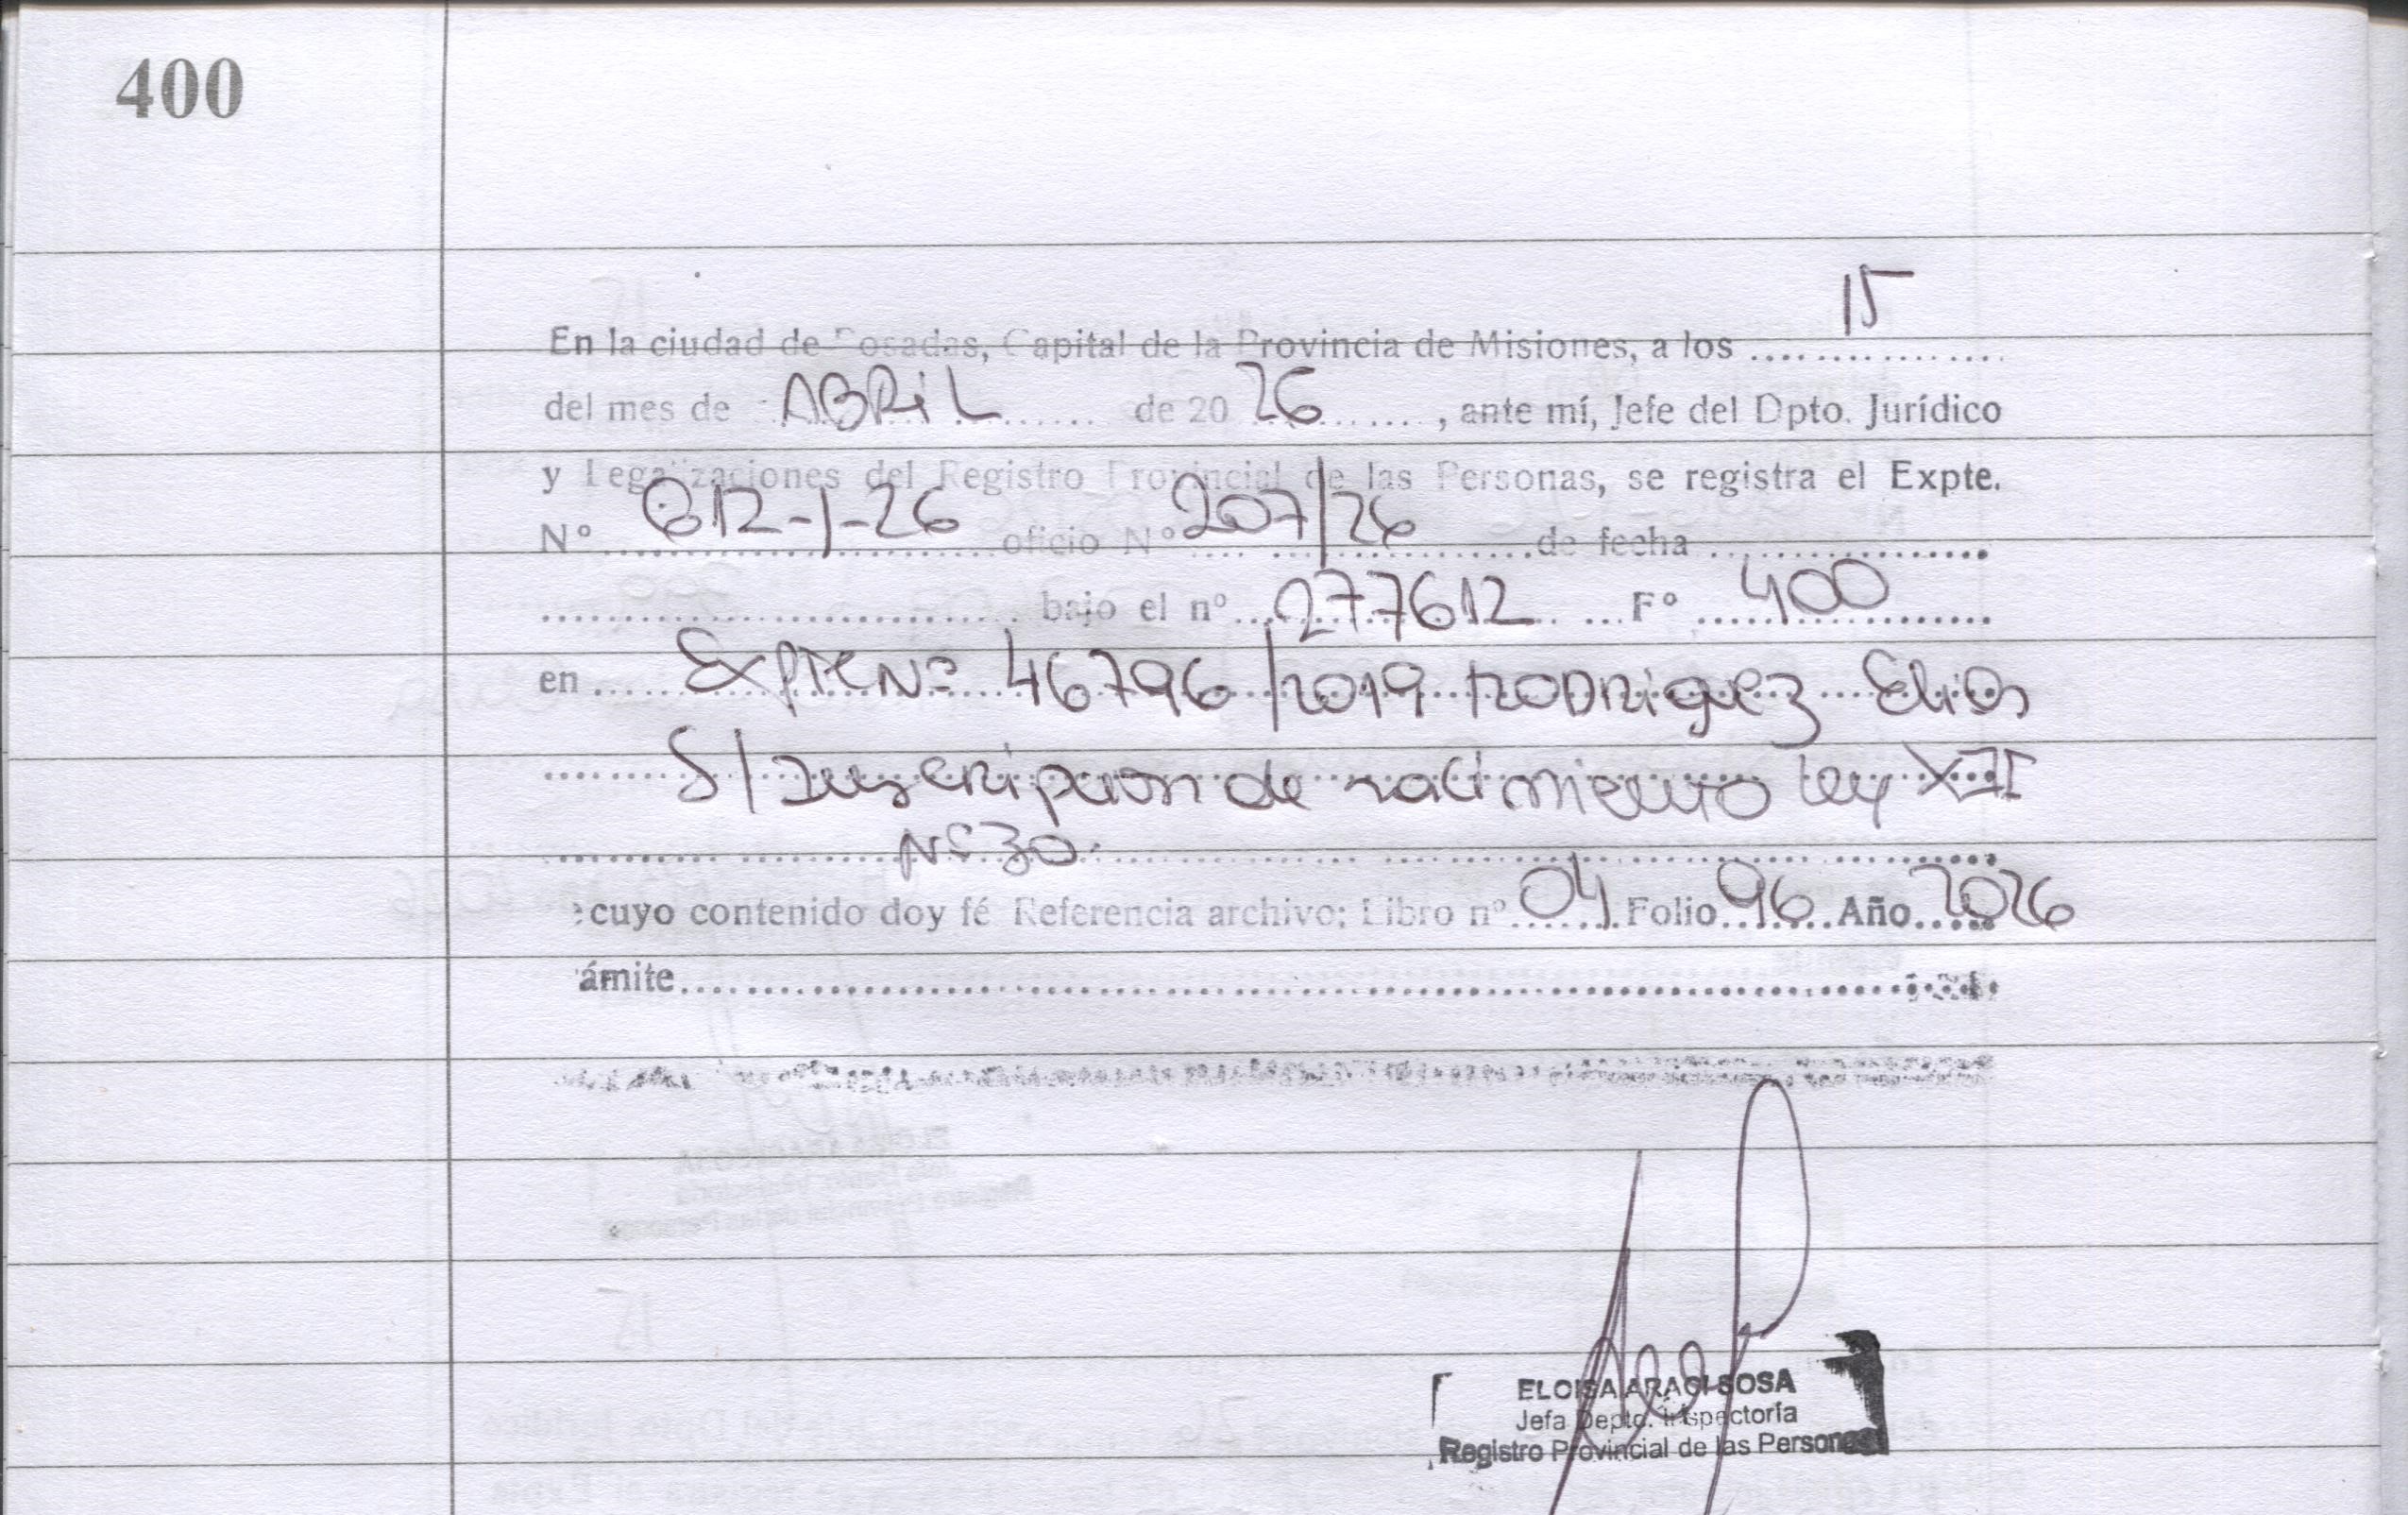 400
15
En la ciudad de Posadas, Capital de la Provincia de Misiones, a los
del mes de ABRIL de 20 26, ante mí, Jefe del Dpto. Jurídico
y Legalizaciones del Registro Provincial de las Personas, se registra el Expte.
N° 612-J-26 oficio N° 207/26 de fecha
bajo el n° 277612 F° 400
en Expte Nº 46796/2019 RODRIGUEZ Elias
S/Inscripcion de nacimiento Ley XII
Nº 30.
cuyo contenido doy fé Referencia archivo: Libro nº 04 Folio 96 Año 2026
ámite
ELOISA ARACI SOSA
Jefa Depto. Inspectoría
Registro Provincial de las Personas